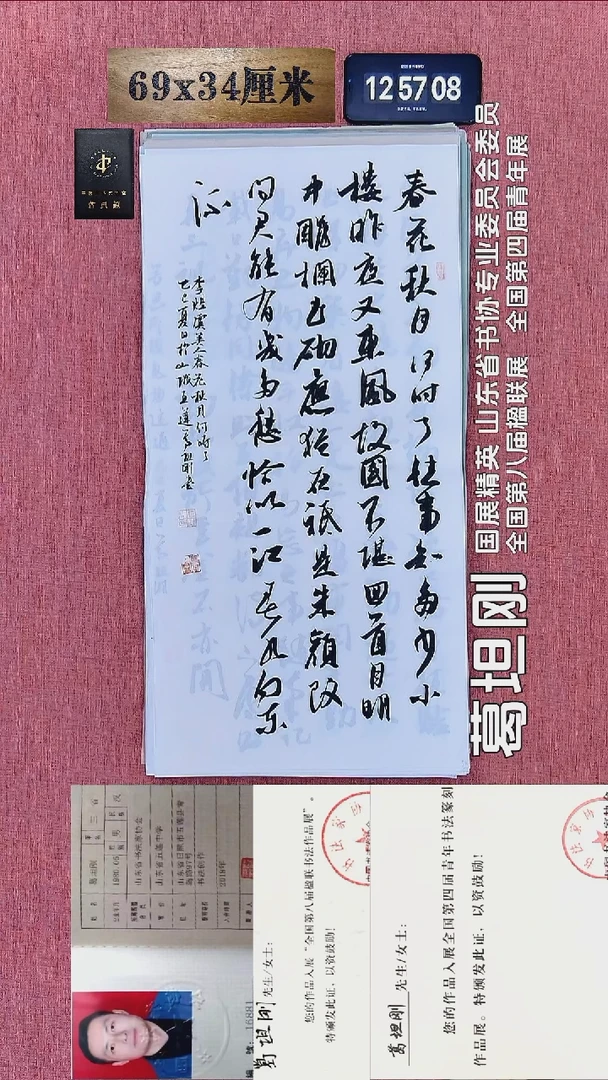 69x34厘米
12 57 08
春花秋月何时了往事知多少小
楼昨夜又东风故国不堪回首月明
中雕栏玉砌应犹在祇是朱颜改
问君能有几多愁恰似一江春水向东
流
李煜虞美人春花秋月何时了
乙巳夏日於山城五莲葛坦刚书
国展精英 山东省书协专业委员会委员
全国第八届楹联展 全国第四届青年展
葛坦刚
葛坦刚 先生/女士：
您的作品入展“全国第八届楹联书法作品展”。
特颁发此证，以资鼓励！
葛坦刚 先生/女士：
您的作品入展全国第四届青年书法篆刻
作品展。特颁发此证，以资鼓励！
山东省书法家协会
山东省五莲中学
书法创作
2018年
16881